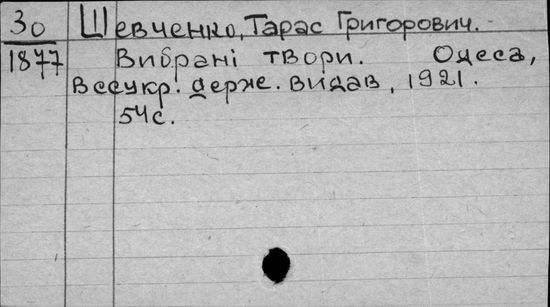 30 Шевченко, Тарас Григорович.
1877 Вибрані твори. Одеса,
Всеукр. держ. видав, 1921.
54 с.